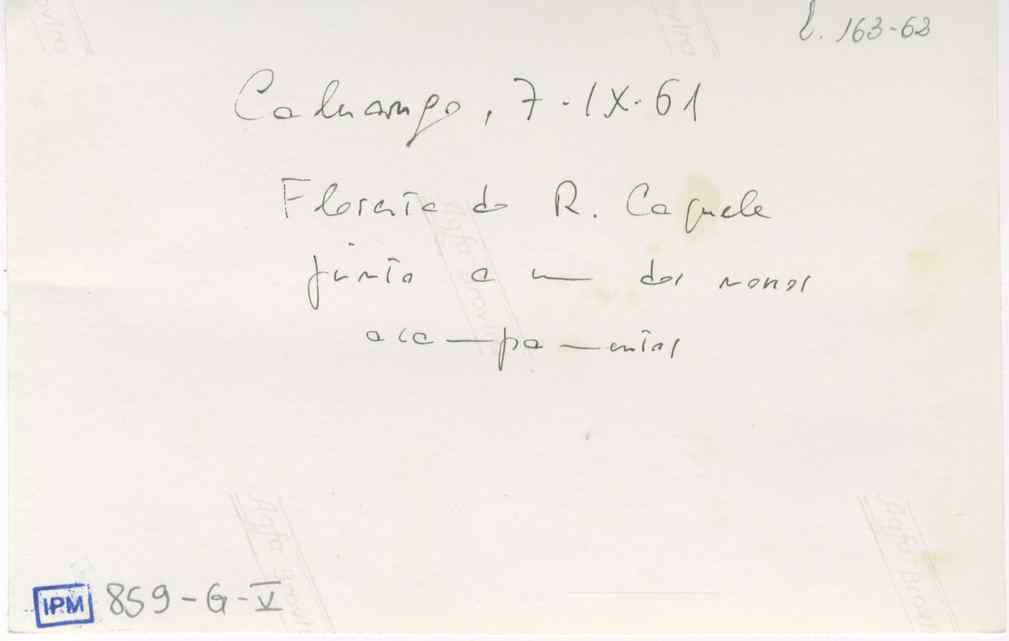 l. 163-63
Caluango, 7-IX-61
Floresta do R. Caquele
junto a um dos nossos
acampamentos
Agfa Brovira
IPM 859-G-V